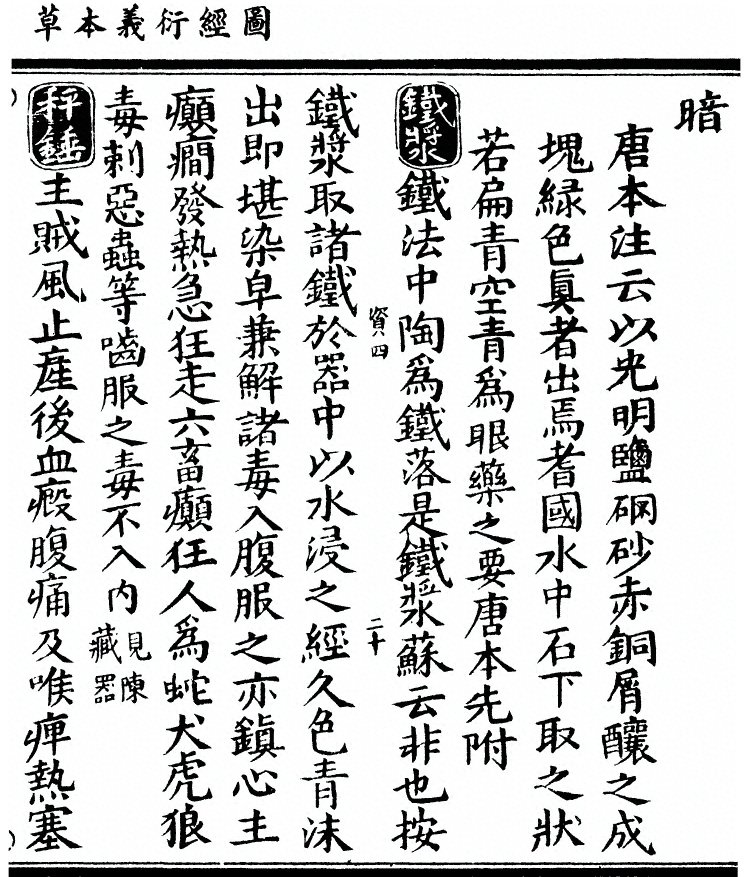 圖經衍義本草
暗
唐本注云以光明鹽硇砂赤銅屑釀之成
塊綠色真者出焉耆國水中石下取之狀
若扁青空青為眼藥之要唐本先附
鐵漿鐵法中陶為鐵落是鐵漿蘇云非也按
資四
二十
鐵漿取諸鐵於器中以水浸之經久色青沫
出即堪染皁兼解諸毒入腹服之亦鎮心主
癲癎發熱急狂走六畜癲狂人為蛇犬虎狼
毒刺惡蟲等嚙服之毒不入內見陳藏器
秤錘主賊風止產後血瘕腹痛及喉痺熱塞